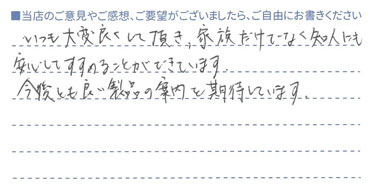 ■当店のご意見やご感想、ご要望がございましたら、ご自由にお書きください
いつも大変良くして頂き、家族だけでなく知人にも
安心してすすめることができています。
今後とも良い製品の案内を期待しています。